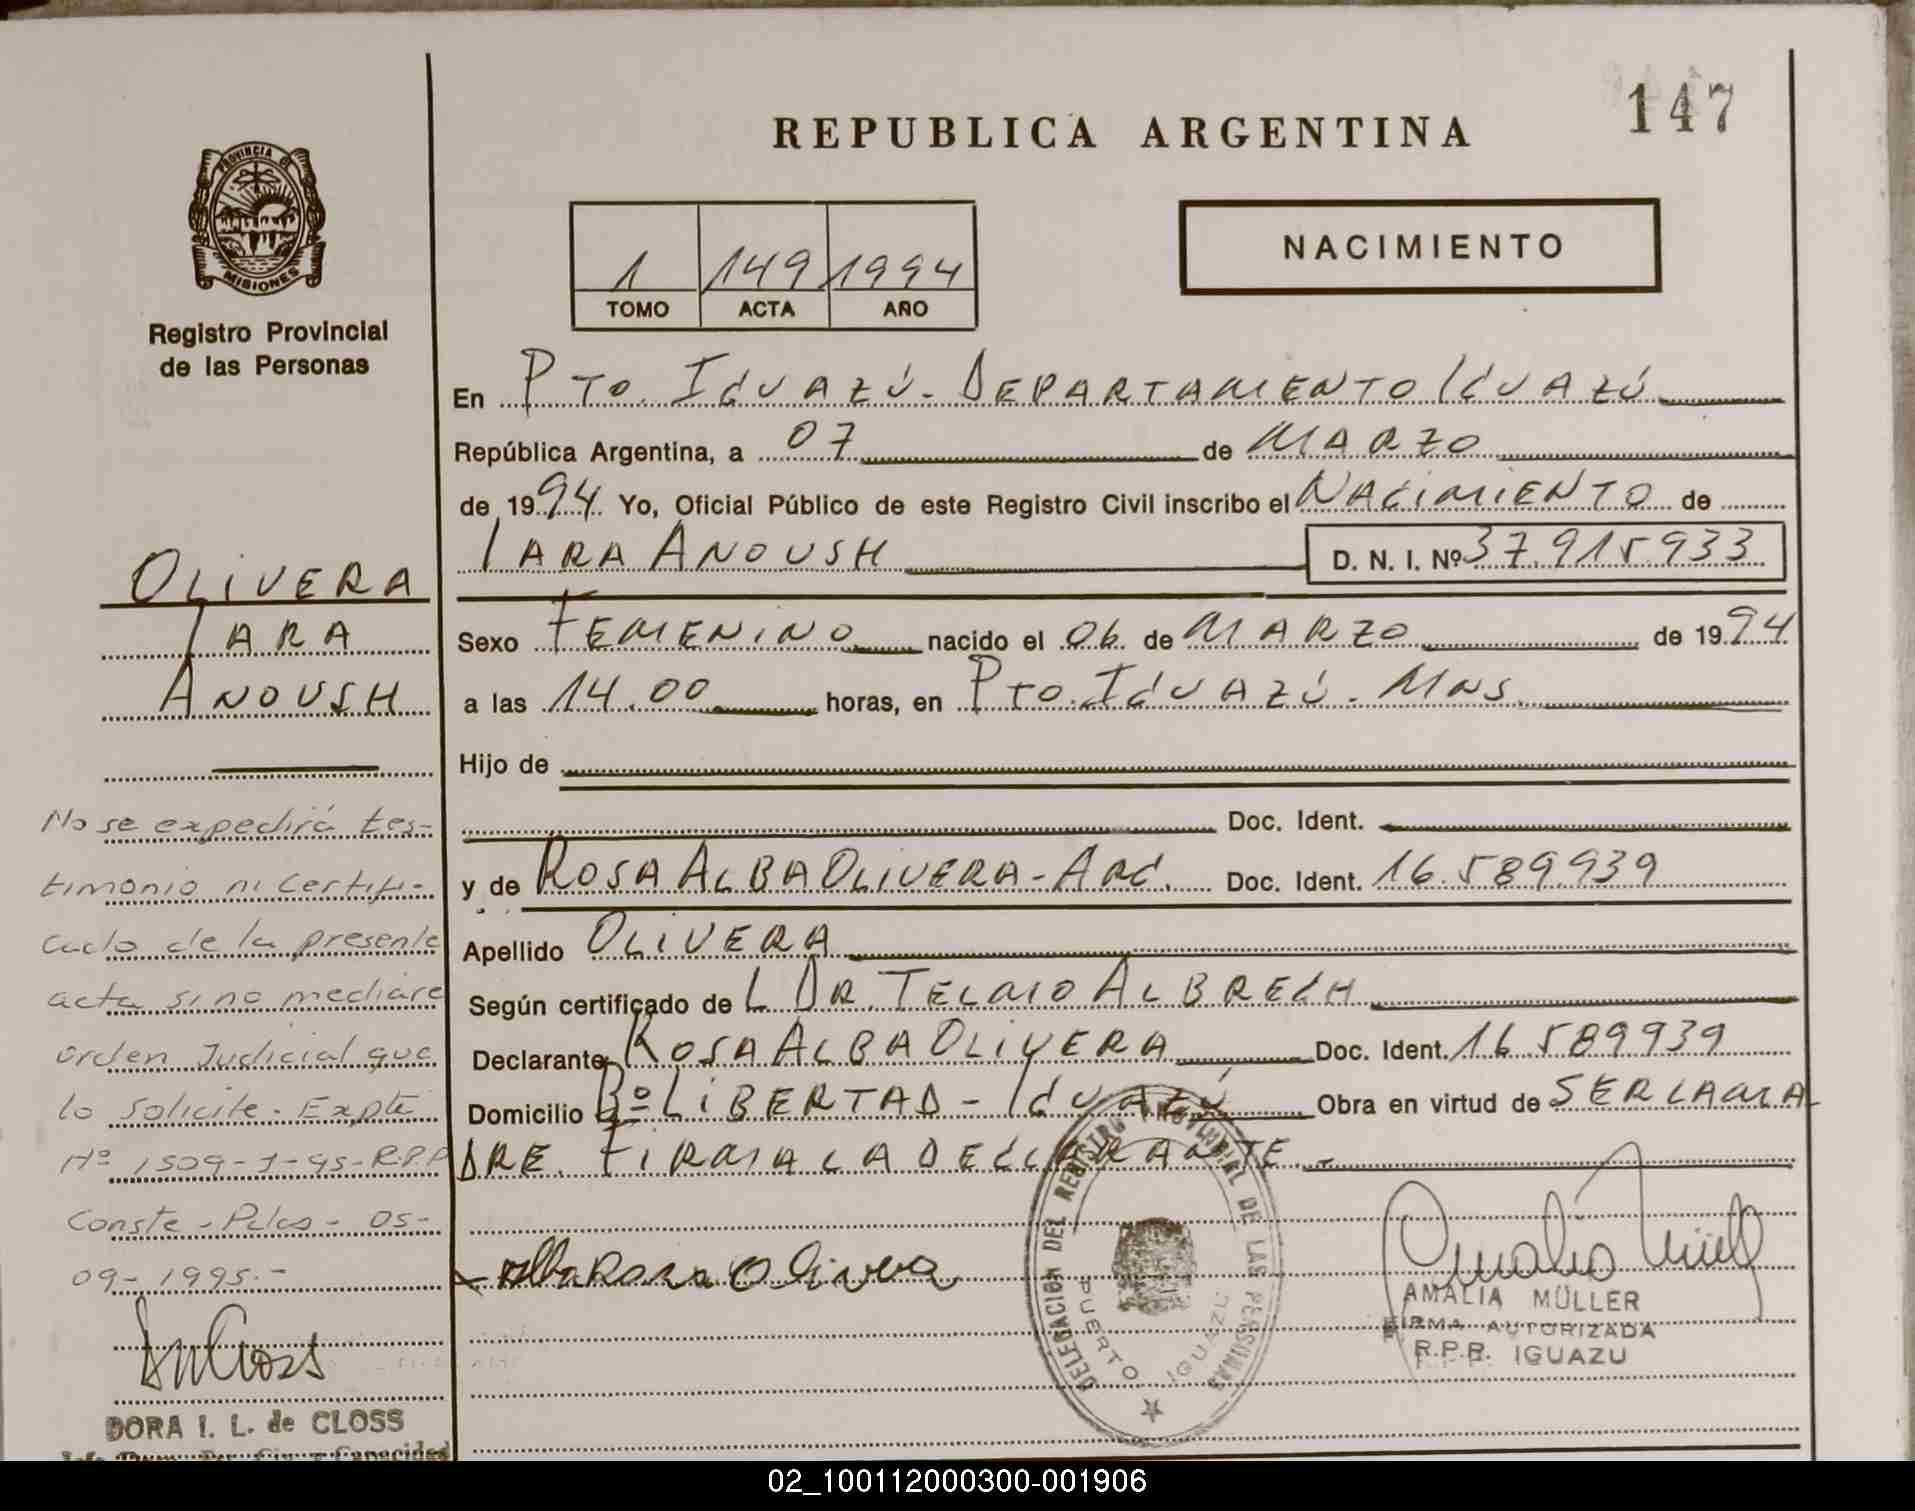 147
REPUBLICA ARGENTINA
PROVINCIA DE
MISIONES
Registro Provincial
de las Personas
1 149 1994
TOMO ACTA AÑO
NACIMIENTO
En Pto. Iguazú - Departamento Iguazú
República Argentina, a 07 de Marzo
de 1994 Yo, Oficial Público de este Registro Civil inscribo el Nacimiento de
Iara Anoush D. N. I. Nº 37.915.933
Sexo Femenino nacido el 06 de Marzo de 1994
a las 14.00 horas, en Pto. Iguazú - Mns.
Hijo de
Doc. Ident.
y de Rosa Alba Olivera - Arg. Doc. Ident. 16.589.939
Apellido Olivera
Según certificado de L Dr. Telmo Albrech
Declarante Rosa Alba Olivera Doc. Ident. 16.589939
Domicilio Bº Libertad - Iguazú Obra en virtud de ser la ma
dre. Firma la declarante.-
Alba Rosa Olivera
DELEGACIÓN DEL REGISTRO PROVINCIAL DE LAS PERSONAS
PUERTO IGUAZU
AMALIA MÜLLER
FIRMA AUTORIZADA
R.P.P. IGUAZU
Olivera
Iara
Anoush
No se expedirá tes-
timonio ni certifi-
cado de la presente
acta si no mediare
orden Judicial que
lo solicite. Expte
Nº 1509-J-95-R.P.P
Conste - Pdas - 05-
09-1995.-
DORA I. L. de CLOSS
02_100112000300-001906